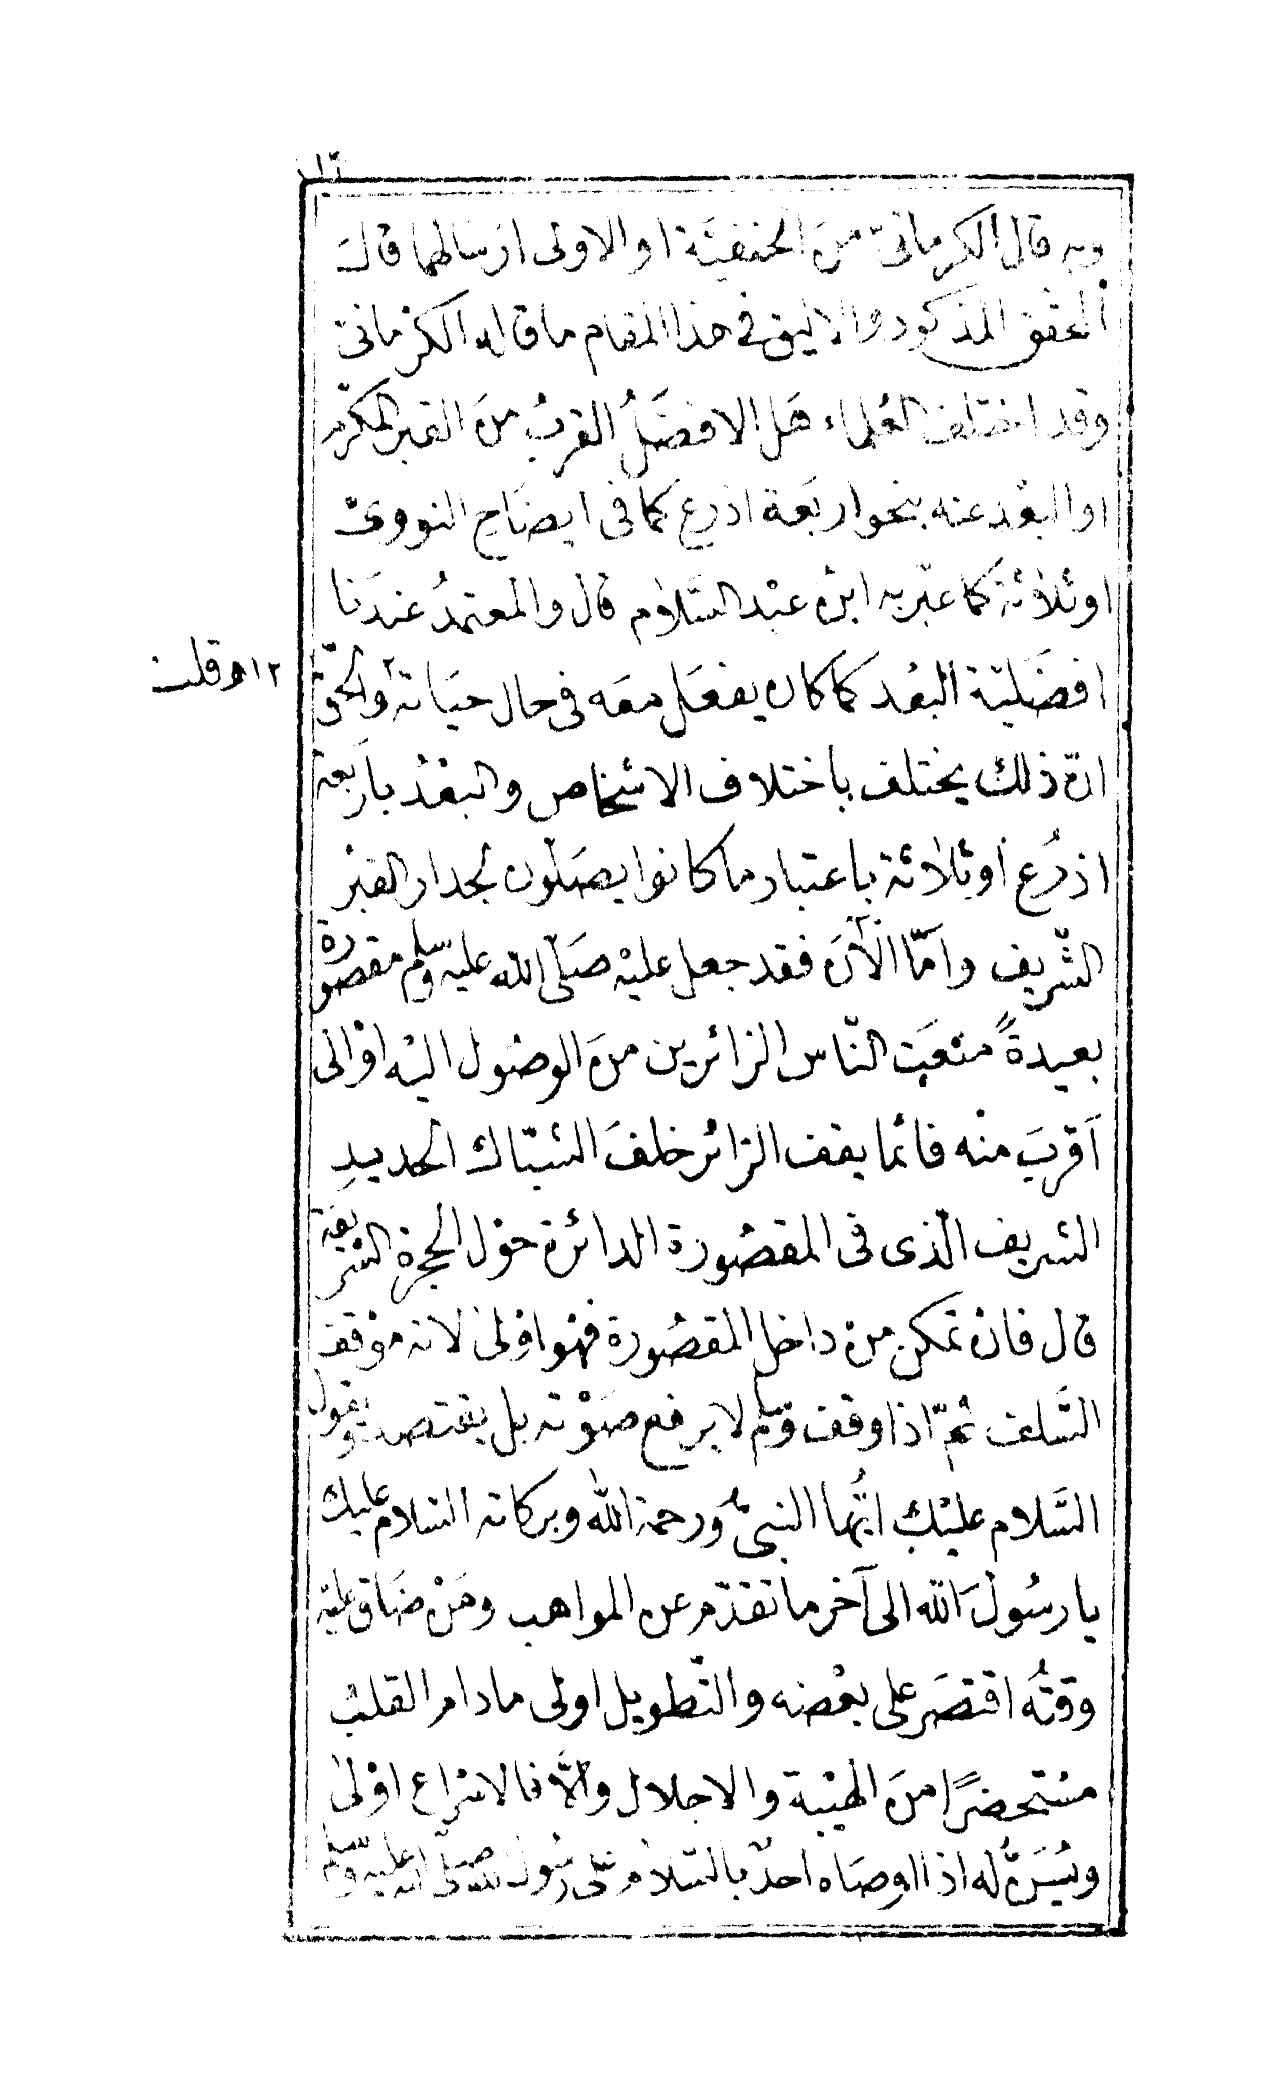 وبه قال الكرمانىّ منَ الحنفيّة او الاولى ارسالهما قالَ
المحقق المذكور والاليق فى هذا المقام ما قاله الكرْمانىّ
وقد اختلف العُلماء هَل الافضَلُ القربُ منَ القبر المكرّم
او البعْد عنه بنحو اربَعة اذرع كما فى ايضَاح النووىّ
او ثلاثة كما عبّر به ابنُ عبْد السَّلام قال والمعتمدُ عندَنا
افضَليّة البعُد كما كان يفعَل معَه فى حال حيَاته والحقّ
١٢ اﻫ قلت
انّ ذلك يختلف باختلاف الاشخاص والبعْد باَربعة
اذرُع أو ثلاثة باعتبار ما كانوا يصَلون لجدار القبْر
الشّريف وامّا الآنَ فقد جعل عليْه صَلّى اللّه عليه وسلم مقصورة
بعيدةً منعَت النّاس الزائرين منَ الوصُول اليْه اوْ الى
اَقربَ منْه فانما يقف الزائر خلفَ الشبّاك الحديدِ
الشريف الّذى فى المقصُورة الدائرة حوْل الحجرة الشريفَة
قال فانْ تمكن منْ داخل المقصُورة فهْو اوْلى لانه موْقف
السَّلف ثمّ اذا وقف وسلم لا يرفع صَوْته بل يقتصد ويقول
السَّلام عليْك ايُّها النبىُّ وَرحمة اللّه وبركاته السّلام عليك
يا رسُولَ اللّه الى آخر ما تقدّم عن المواهب ومَنْ ضَاق عليْه
وقتُه اقتصَر على بعْضه والتّطويل اولى ما دام القلبُ
مسْتحضرًا منَ الهيْبة والاجلال والَّا فالاسْراع اوْلىٰ
ويُسَنُّ له اذا اوصَاه احدٌ بالسّلام على رسُول اللّه صلّى اللّه عليه وسلّم